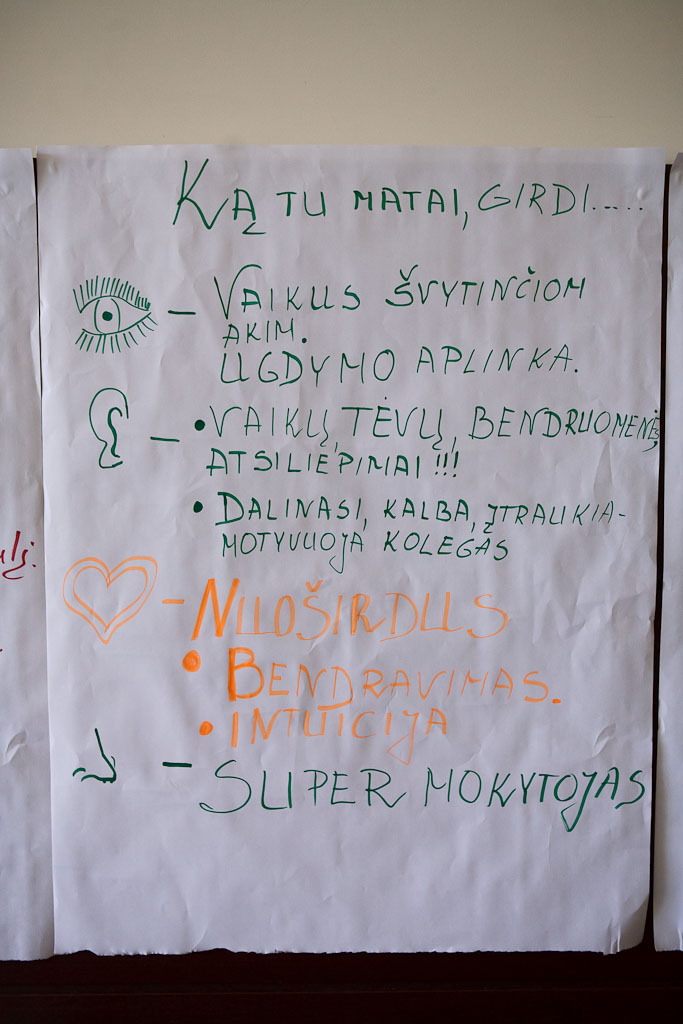 KĄ TU MATAI, GIRDI.....
– VAIKUS ŠVYTINČIOM
AKIM.
UGDYMO APLINKA.
– • VAIKŲ, TĖVŲ, BENDRUOMENĖS,
ATSILIEPIMAI !!!
• DALINASI, KALBA, ĮTRAUKIA-
MOTYVUOJA KOLEGAS
– NUOŠIRDUS
• BENDRAVIMAS.
• INTUICIJA
– SUPER MOKYTOJAS